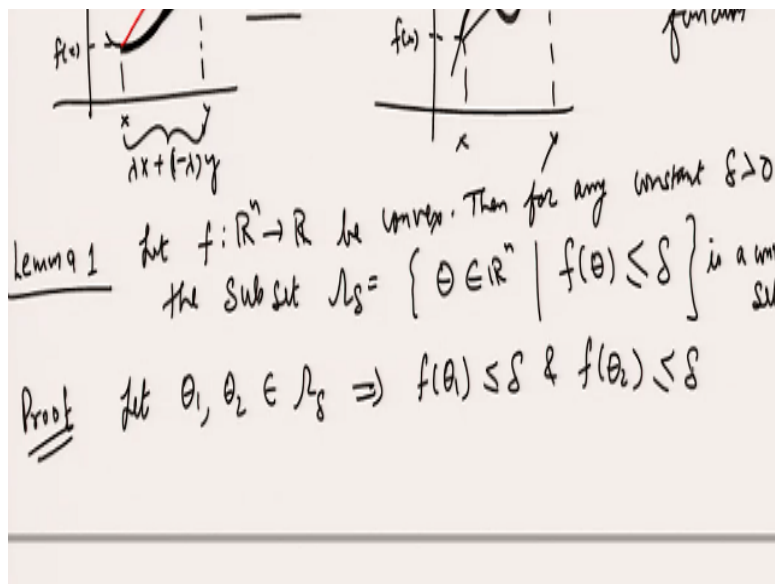 f(x)
f(x)
x y
x y
λx + (-λ)y
Lemma 1 Let f: ℝⁿ → ℝ be convex. Then for any constant δ>0
the subset Λ_δ = { θ ∈ ℝⁿ | f(θ) ≤ δ } is a
Proof Let θ₁, θ₂ ∈ Λ_δ ⇒ f(θ₁) ≤ δ & f(θ₂) ≤ δ